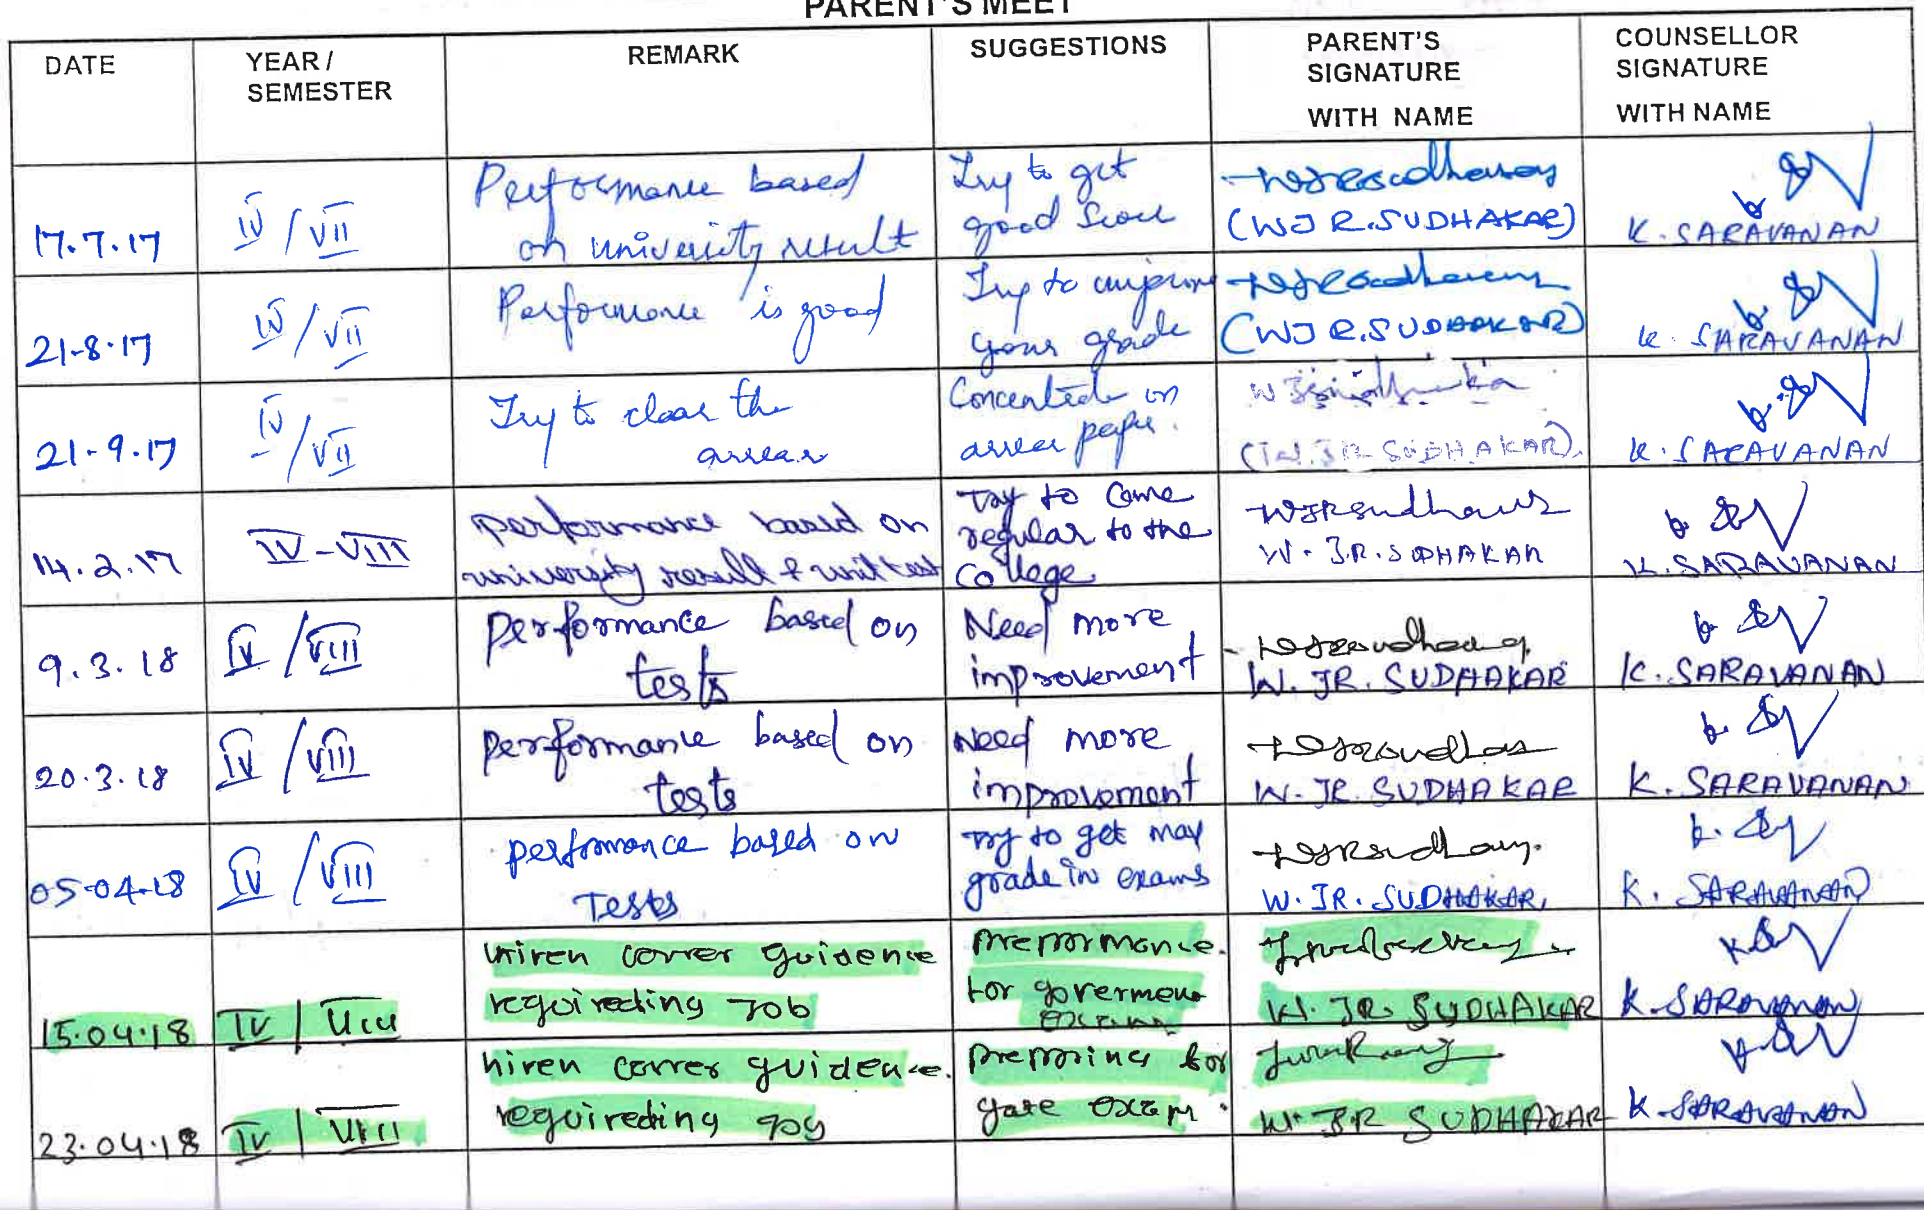 PARENT'S MEET
DATE
YEAR /
SEMESTER
REMARK
SUGGESTIONS
PARENT'S
SIGNATURE
WITH NAME
COUNSELLOR
SIGNATURE
WITH NAME
17.7.17
IV / VII
Performance based
on university result
Try to get
good score
(WJ R.SUDHAKAR)
K. SARAVANAN
21-8-17
IV / VII
Performance is good
Try to improve
your grade
(WJ R.SUDHAKAR)
K. SARAVANAN
21-9-17
IV / VII
Try to clear the
arrear
Concentrate on
arrear paper.
(W.JR SUDHAKAR).
K. SARAVANAN
14.2.17
IV - VIII
performance based on
university result & unit test
Try to come
regular to the
college
W. J.R. SUDHAKAR
K. SARAVANAN
9.3.18
IV / VIII
performance based on
tests
Need more
improvement
W. JR. SUDHAKAR
K. SARAVANAN
20.3.18
IV / VIII
performance based on
tests
Need more
improvement
W. JR. SUDHAKAR
K. SARAVANAN
05-04-18
IV / VIII
performance based on
Tests
Try to get max
grade in exams
W. JR. SUDHAKAR.
K. SARAVANAN
15.04.18
IV / VIII
guidence
Job
for goverment
W. JR. SUDHAKAR
K. SARAVANAN
23.04.18
IV / VIII
guidence.
for
gate exam.
W. JR SUDHAKAR
K. SARAVANAN